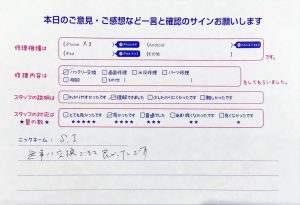 本日のご意見・ご感想など一言と確認のサインお願いします
修理機種は
iPhone X8
Android
iPad
その他
修理内容は
バッテリー交換 画面修理 水没修理 パーツ修理
相談 その他
をしてもらいました。
スタッフの説明は
わかりやすかったです 理解できました 少しわかりにくかったです 難しかったです
スタッフの対応は
★星の数★
とても良かったです 良かったです 普通でした あまり良くなかったです 良くなかったです
★★★★★ ★★★★ ★★★ ★★ ★
ニックネーム: S.I
無事に交換できて良かったです